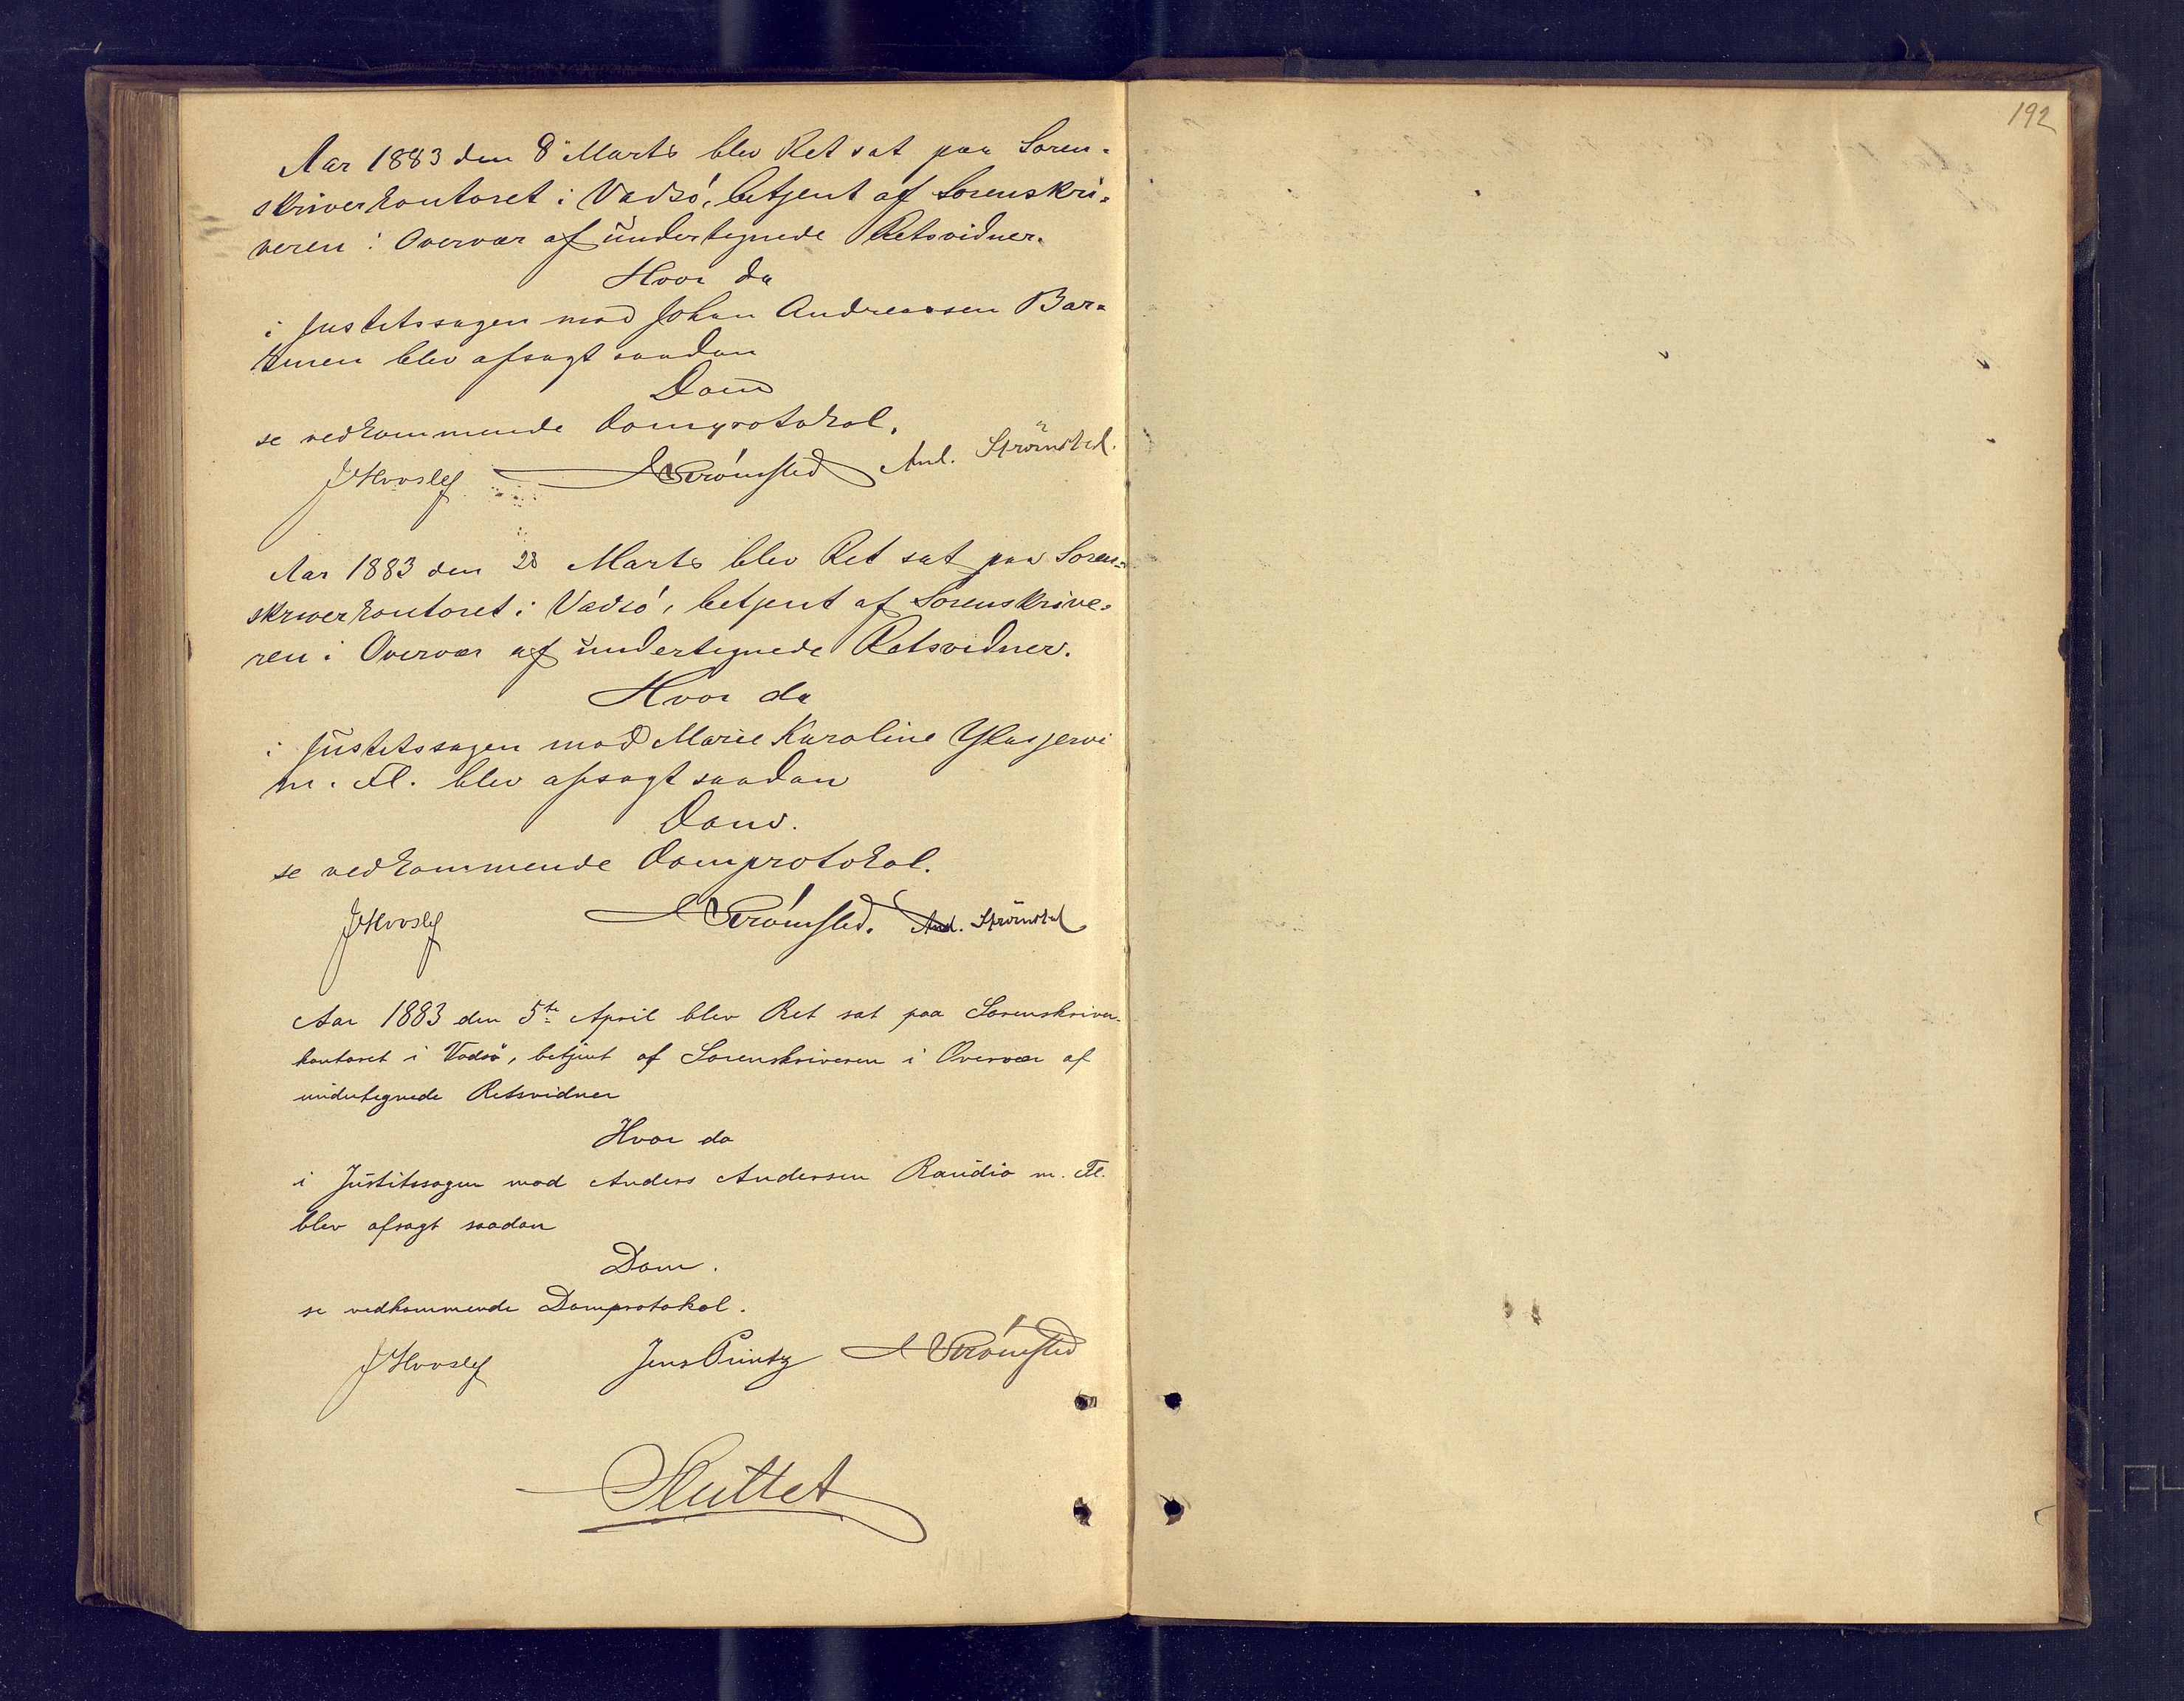 192
Aar 1883 den 8 Marts blev Ret sat paa Soren-
skriverkontoret i Vadsö, betjent af Sorenskri-
veren i Overvær af undertegnede Retsvidner.
Hvor da
i Justitssagen mod Johan Andreassen Bar-
blev afsagt saadan
Dom
se vedkommende Domprotokol.
Strömsted And. Strömsted.
Aar 1883 den 28 Marts blev Ret sat paa Soren-
skriverkontoret i Vadsö, betjent af Sorenskrive-
ren i Overvær af undertegnede Retsvidner.
Hvor da
i Justitssagen mod Marie Karoline
m. Fl. blev afsagt saadan
Dom.
se vedkommende Domprotokol.
Strömsted. And. Strömsted
Aar 1883 den 5te April blev Ret sat paa Sorenskriver-
kontoret i Vadsö, betjent af Sorenskriveren i Overvær af
undertegnede Retsvidner
Hvor da
i Justitssagen mod Anders Andersen Raudio m. Fl.
blev afsagt saadan
Dom.
se vedkommende Domprotokol.
Jens Printz Strömsted
Sluttet